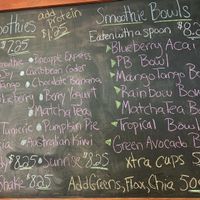 oothies add protein $1.95
$7.25
Pineapple Express
Caribbean
Chocolate Banana
Berry Yogurt
Matcha Tea
Turmeric Pumpkin Pie
Australian Kiwi
$8.25 Sunrise $8.25
Shake $8.25
Smoothie Bowls
Eaten with a spoon $8.
Blueberry Acai
PB Bowl
Mango Tango B
Rainbow Bow
Matcha Tea B
Tropical Bowl
Green Avocado B
xtra cups 5
Add Greens, Flax, Chia 50